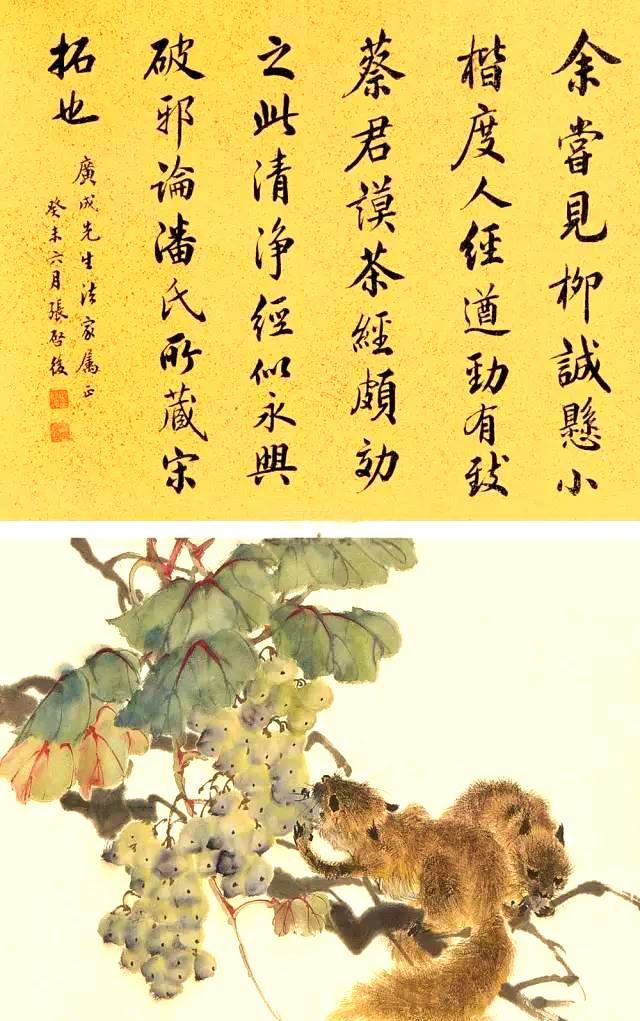 余嘗見柳誠懸小
楷度人經遒勁有致
蔡君謨茶經頗効
之此清淨經似永興
破邪論潘氏所藏宋
拓也
廣成先生法家属正
癸未六月張啓後